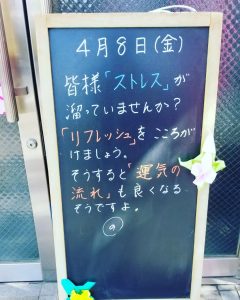 4月8日(金)
皆様「ストレス」が
溜っていませんか？
「リフレッシュ」を こころが
けましょう。
そうすると「運気の
流れ」も良くなる
そうですよ。
の